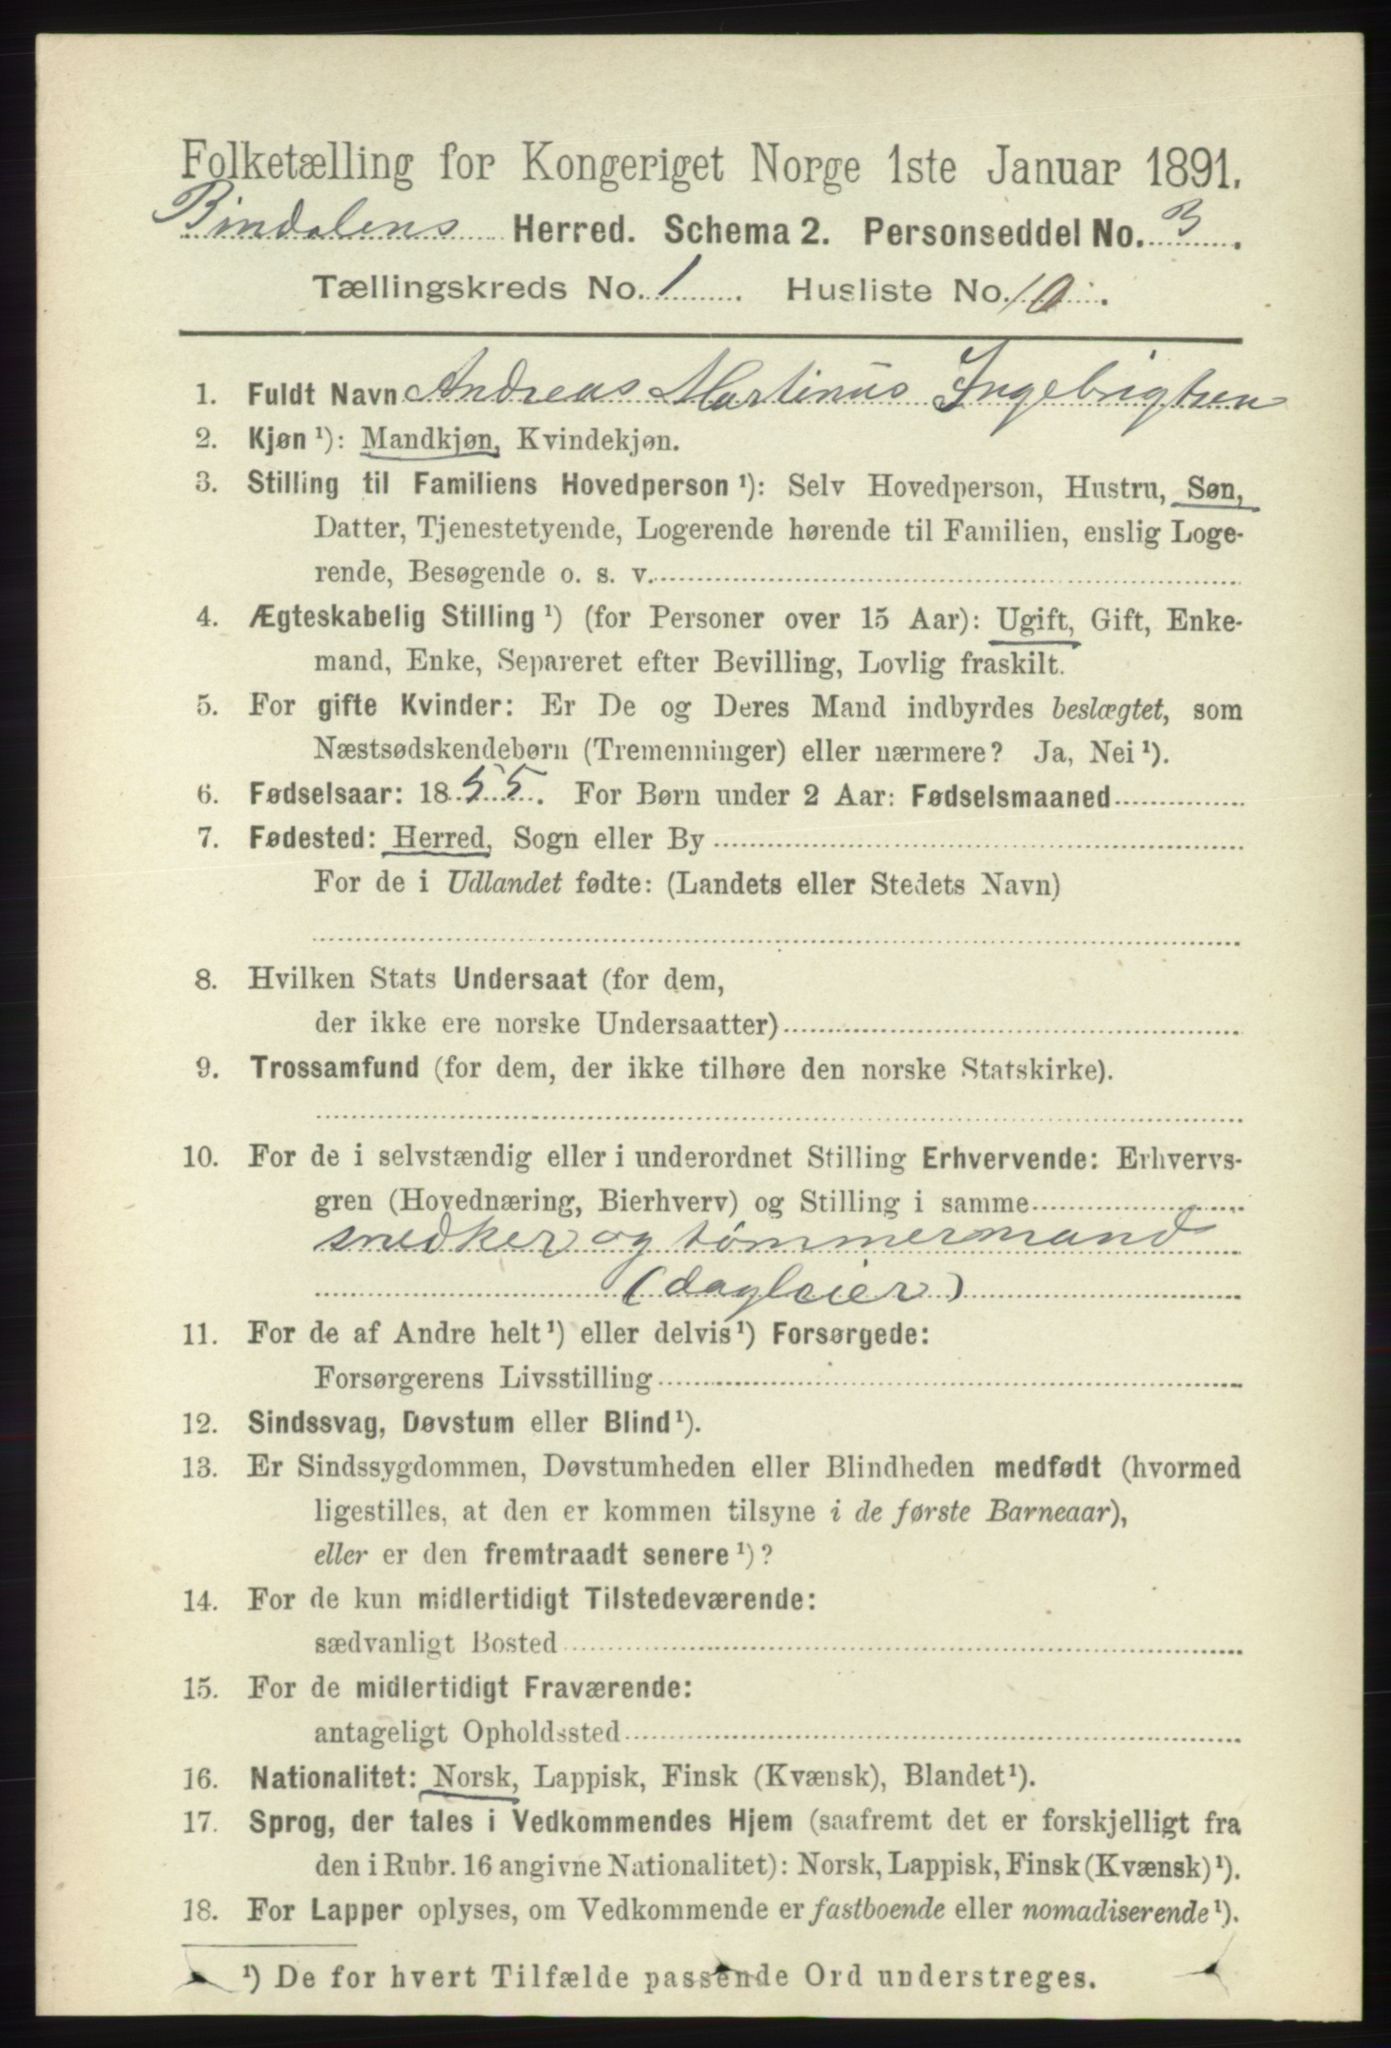 Folketælling for Kongeriget Norge 1ste Januar 1891.
Bindalens Herred. Schema 2. Personseddel No. 3.
Tællingskreds No. 1. Husliste No. 10.
1. Fuldt Navn Andreas Martinus Ingebrigtsen
2. Kjøn ¹): Mandkjøn, Kvindekjøn.
3. Stilling til Familiens Hovedperson ¹): Selv Hovedperson, Hustru, Søn,
Datter, Tjenestetyende, Logerende hørende til Familien, enslig Loge-
rende, Besøgende o. s. v.
4. Ægteskabelig Stilling ¹) (for Personer over 15 Aar): Ugift, Gift, Enke-
mand, Enke, Separeret efter Bevilling, Lovlig fraskilt.
5. For gifte Kvinder: Er De og Deres Mand indbyrdes beslægtet, som
Næstsødskendebørn (Tremenninger) eller nærmere? Ja, Nei ¹).
6. Fødselsaar: 1855. For Børn under 2 Aar: Fødselsmaaned
7. Fødested: Herred, Sogn eller By
For de i Udlandet fødte: (Landets eller Stedets Navn)
8. Hvilken Stats Undersaat (for dem,
der ikke ere norske Undersaatter)
9. Trossamfund (for dem, der ikke tilhøre den norske Statskirke).
10. For de i selvstændig eller i underordnet Stilling Erhvervende: Erhvervs-
gren (Hovednæring, Bierhverv) og Stilling i samme
snedker og tømmermand
(dagleier)
11. For de af Andre helt ¹) eller delvis ¹) Forsørgede:
Forsørgerens Livsstilling
12. Sindssvag, Døvstum eller Blind ¹).
13. Er Sindssygdommen, Døvstumheden eller Blindheden medfødt (hvormed
ligestilles, at den er kommen tilsyne i de første Barneaar),
eller er den fremtraadt senere ¹)?
14. For de kun midlertidigt Tilstedeværende:
sædvanligt Bosted
15. For de midlertidigt Fraværende:
antageligt Opholdssted
16. Nationalitet: Norsk, Lappisk, Finsk (Kvænsk), Blandet ¹).
17. Sprog, der tales i Vedkommendes Hjem (saafremt det er forskjelligt fra
den i Rubr. 16 angivne Nationalitet): Norsk, Lappisk, Finsk (Kvænsk) ¹).
18. For Lapper oplyses, om Vedkommende er fastboende eller nomadiserende ¹).
¹) De for hvert Tilfælde passende Ord understreges.